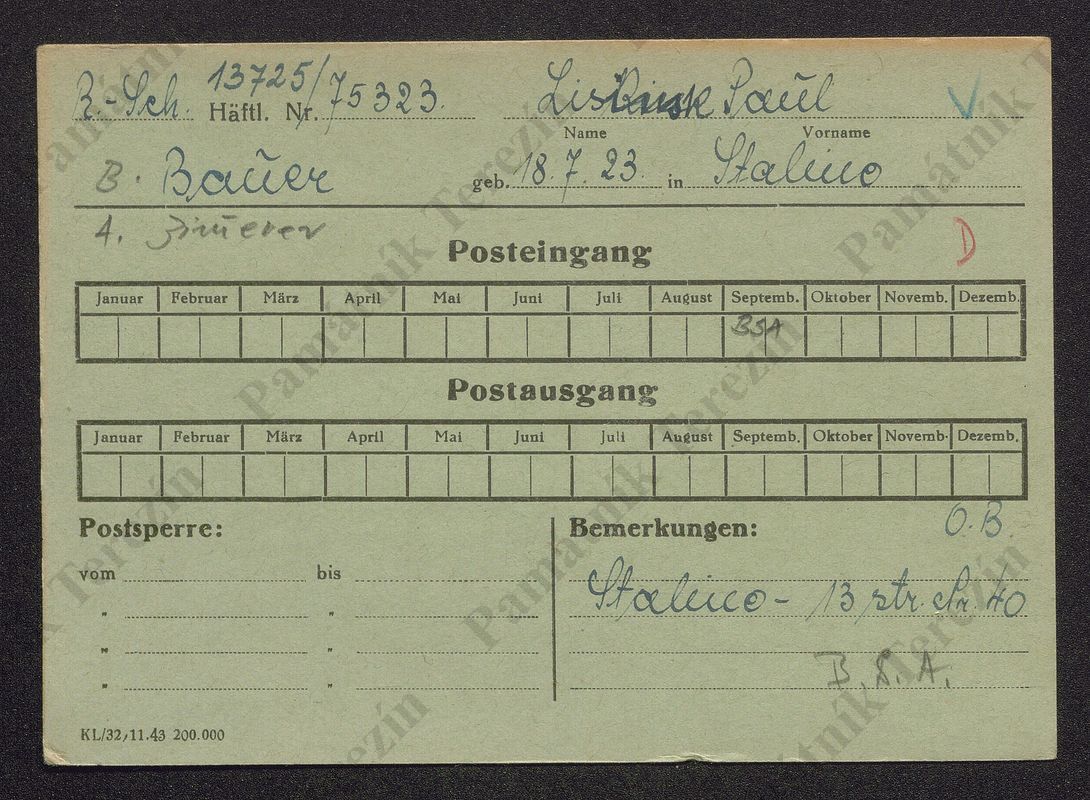 R.-Sch. Häftl. Nr. 13725/75323. Paul
Name Vorname
B. Bauer geb. 18.7.23. in Stalino
4.
D
Posteingang
Januar Februar März April Mai Juni Juli August Septemb. Oktober Novemb. Dezemb.
BSA
Postausgang
Januar Februar März April Mai Juni Juli August Septemb. Oktober Novemb. Dezemb.
Postsperre: Bemerkungen: O.B.
vom bis
Stalino - 13 str. Nr. 40
" "
" "
B.S.A.
" "
KL/32/11.43 200.000
Památník Terezín